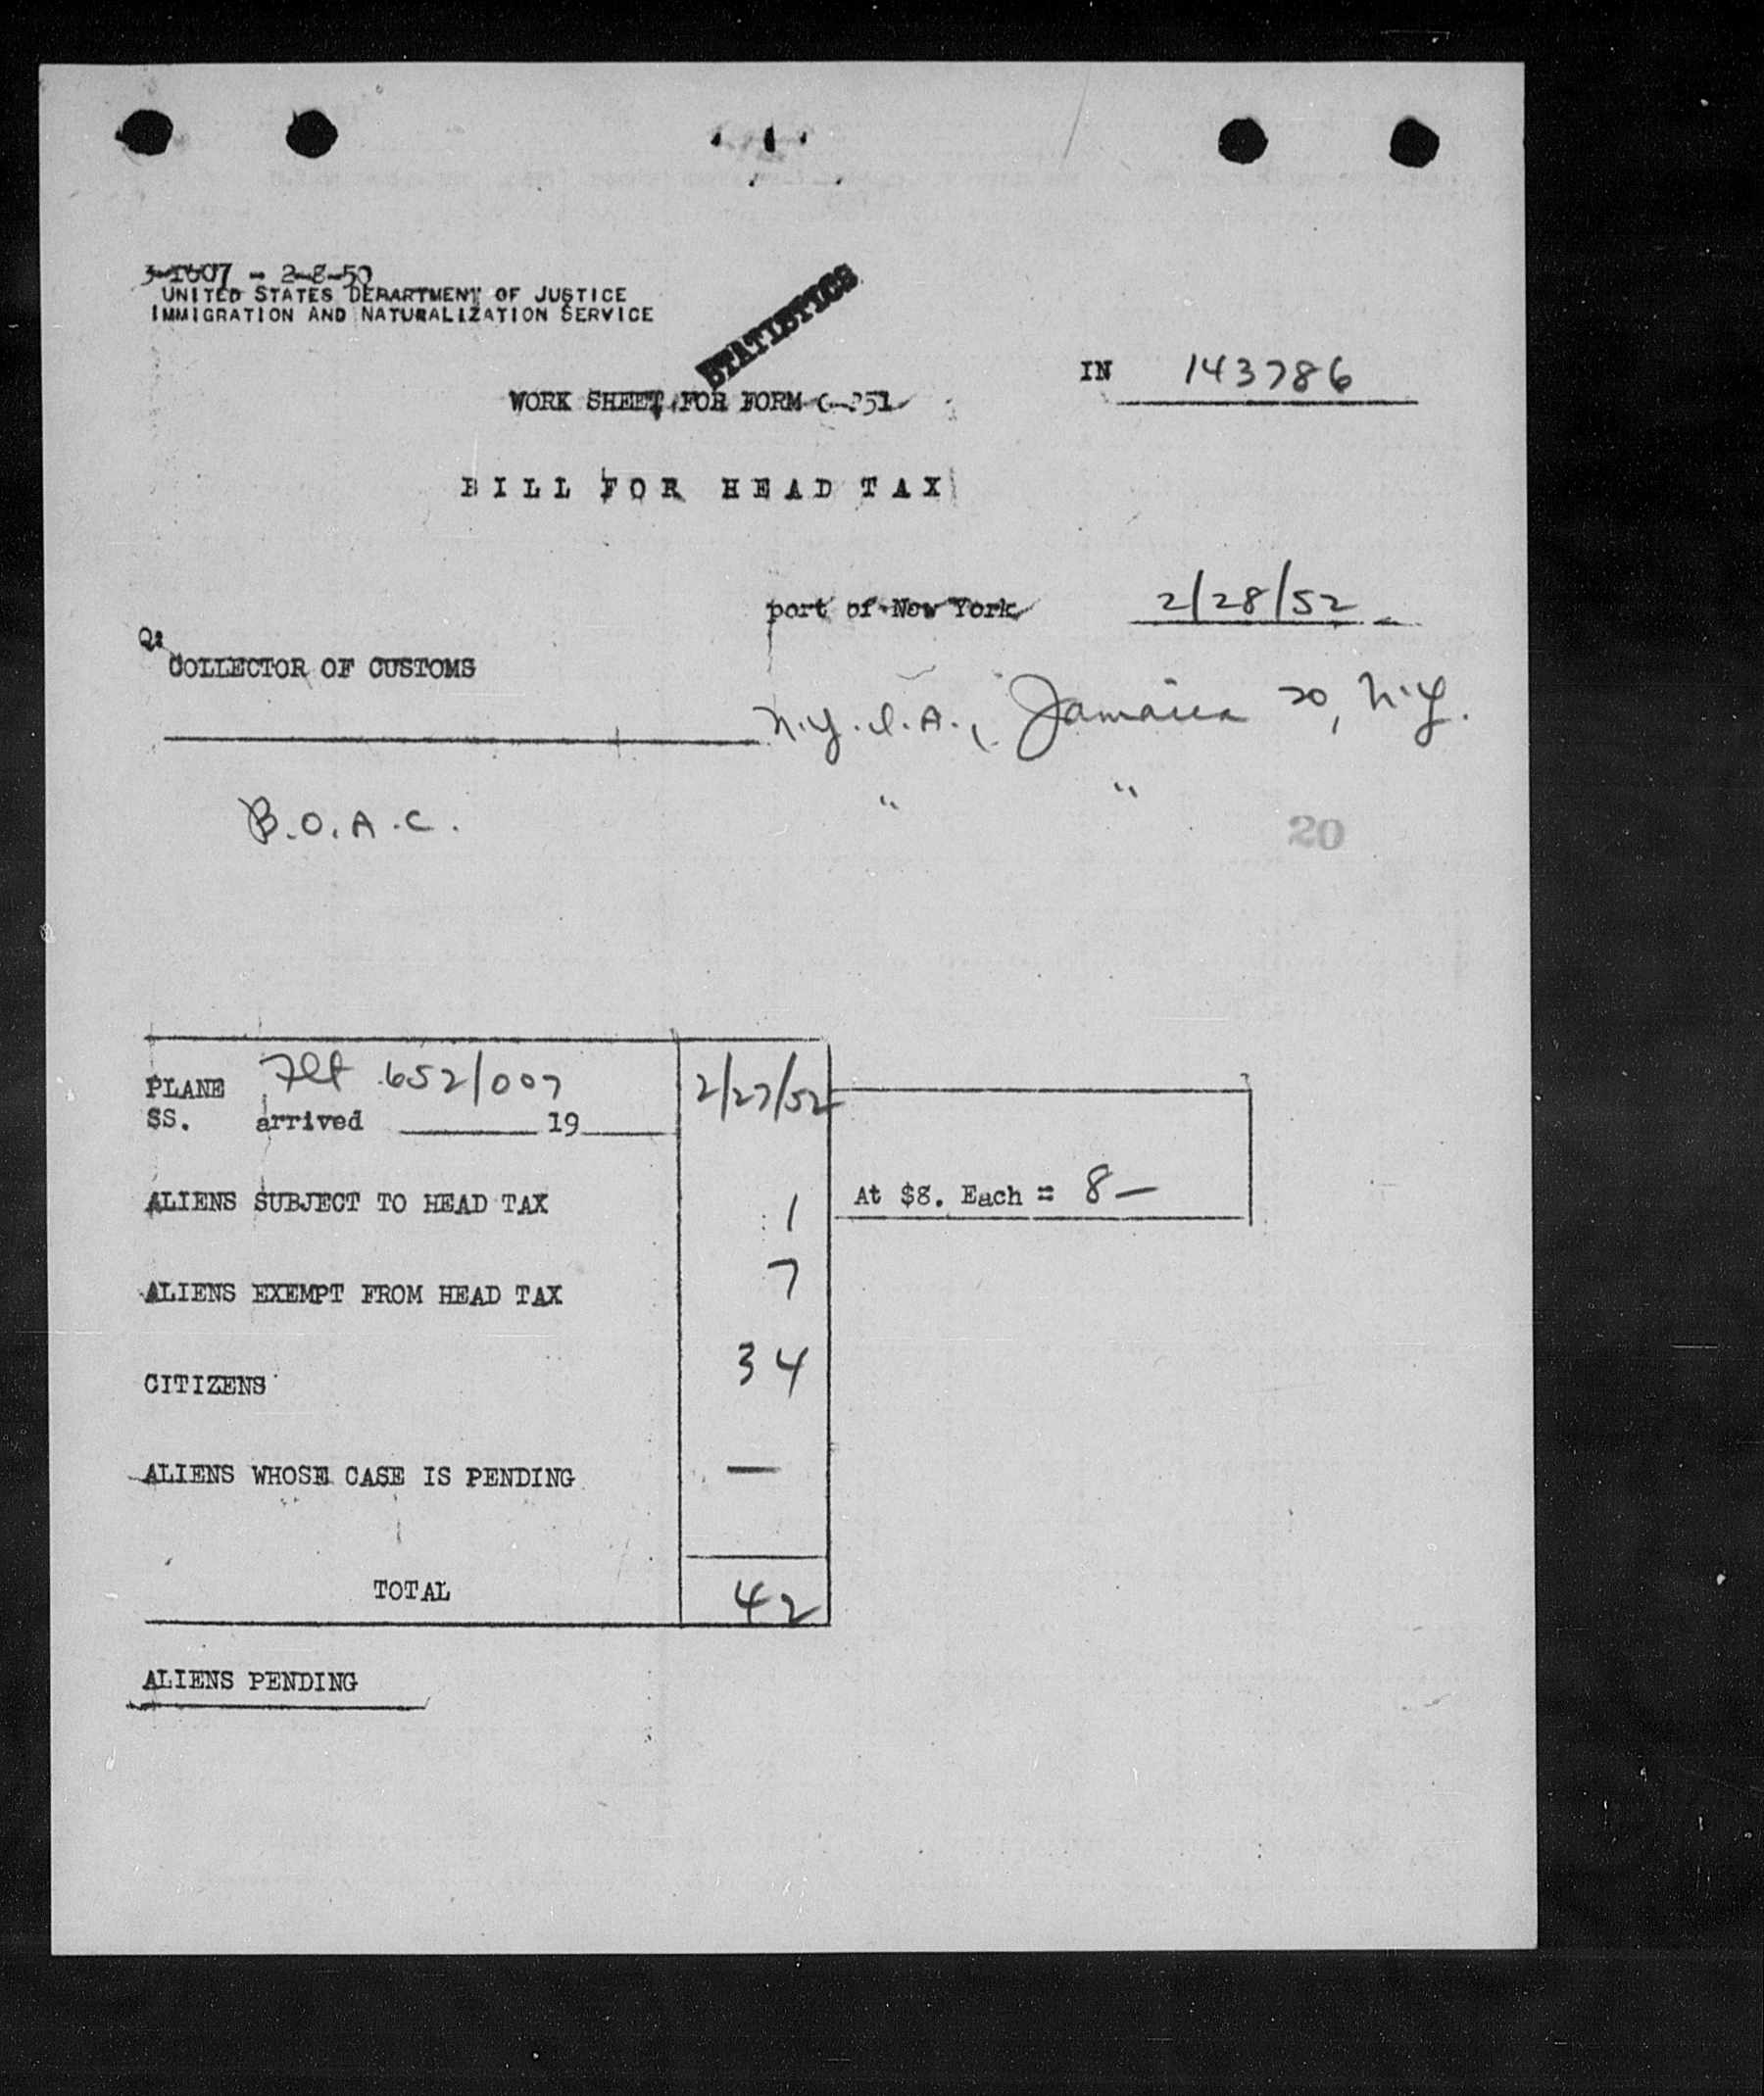 3-1607 - 2-8-50
UNITED STATES DEPARTMENT OF JUSTICE
IMMIGRATION AND NATURALIZATION SERVICE
STATISTICS
IN 143786
WORK SHEET FOR FORM C-251
BILL FOR HEAD TAX
port of New York 2/28/52
COLLECTOR OF CUSTOMS
N.Y.I.A., Jamaica 20, N.Y.
B.O.A.C. " "
20
PLANE Flt 652/007 2/27/52
SS. arrived 19
ALIENS SUBJECT TO HEAD TAX 1 At $8. Each = 8—
ALIENS EXEMPT FROM HEAD TAX 7
CITIZENS 34
ALIENS WHOSE CASE IS PENDING —
TOTAL 42
ALIENS PENDING